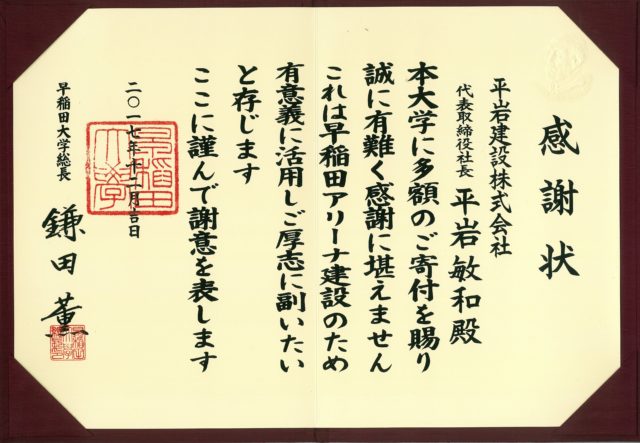 感謝状
平岩建設株式会社
代表取締役社長 平岩敏和殿
本大学に多額のご寄付を賜り
誠に有難く感謝に堪えません
これは早稲田アリーナ建設のため
有意義に活用しご厚志に副いたい
と存じます
ここに謹んで謝意を表します
二〇一七年十二月吉日
早稲田大学総長
鎌田薫